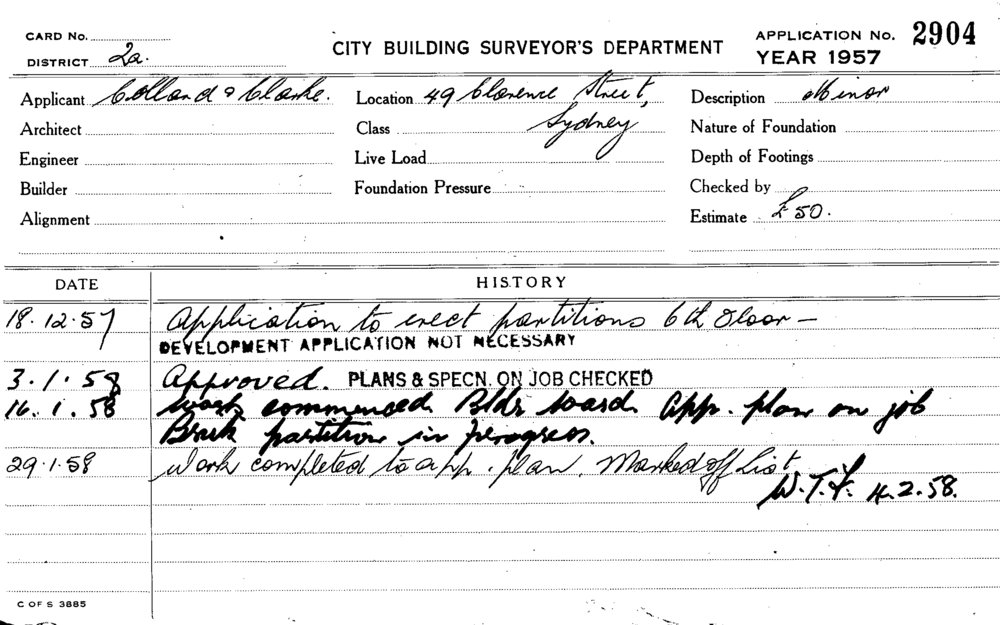 CARD No.
DISTRICT 2a.
CITY BUILDING SURVEYOR'S DEPARTMENT
APPLICATION No. 2904
YEAR 1957
Applicant Collard & Clarke.
Location 49 Clarence Street,
Sydney
Description Minor
Architect
Class
Nature of Foundation
Engineer
Live Load
Depth of Footings
Builder
Foundation Pressure
Checked by
Alignment
Estimate £50.
DATE
HISTORY
18.12.57 Application to erect partitions 6th floor —
DEVELOPMENT APPLICATION NOT NECESSARY
3.1.58 Approved. PLANS & SPECN. ON JOB CHECKED
16.1.58 Work commenced. Bldr board. App. plan on job
Brick partition in progress.
29.1.58 Work completed to app. plan. Marked off List
W.T.F. 4.2.58.
C OF S 3885